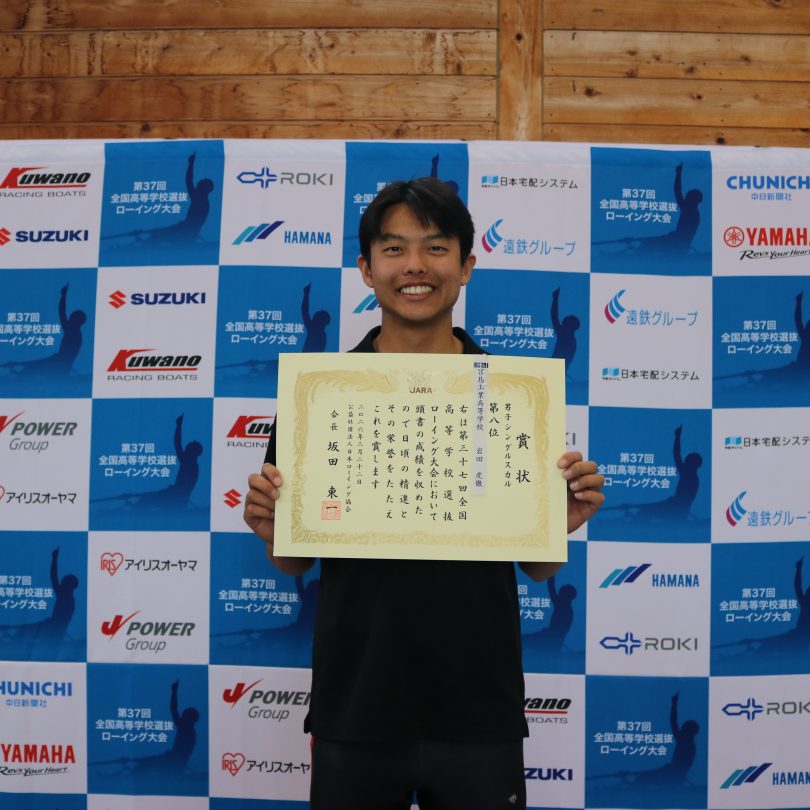 Kuwano
RACING BOATS
第37回
全国高等学校選抜
ローイング大会
ROKI
日本宅配システム
第37回
全国高等学校選抜
ローイング大会
CHUNICHI
中日新聞社
SUZUKI
HAMANA
遠鉄グループ
YAMAHA
Revs Your Heart
第37回
全国高等学校選抜
ローイング大会
SUZUKI
第37回
全国高等学校選抜
ローイング大会
第37回
全国高等学校選抜
ローイング大会
遠鉄グループ
第37回
全国高等学校選抜
ローイング大会
Kuwano
RACING BOATS
日本宅配システム
JARA
賞状
男子シングルスカル
第八位
工業高等学校 岩田 虎徹
右は第三十七回全国
高等学校選抜
ローイング大会において
頭書の成績を収めた
ので日頃の精進と
その栄誉をたたえ
これを賞します
二〇二六年三月二十二日
公益社団法人日本ローイング協会
会長 坂田 東一
J POWER
Group
第37回
全国高等学校選抜
ローイング大会
日本宅配システム
アイリスオーヤマ
遠鉄グループ
第37回
全国高等学校選抜
ローイング大会
IRIS
アイリスオーヤマ
第37回
全国高等学校選抜
ローイング大会
HAMANA
第37回
全国高等学校選抜
ローイング大会
J POWER
Group
ROKI
CHUNICHI
中日新聞社
第37回
全国高等学校選抜
ローイング大会
J POWER
Group
第37回
全国高等学校選抜
ローイング大会
ROKI
YAMAHA
Revs Your Heart
IRIS
アイリスオーヤマ
HAMANA